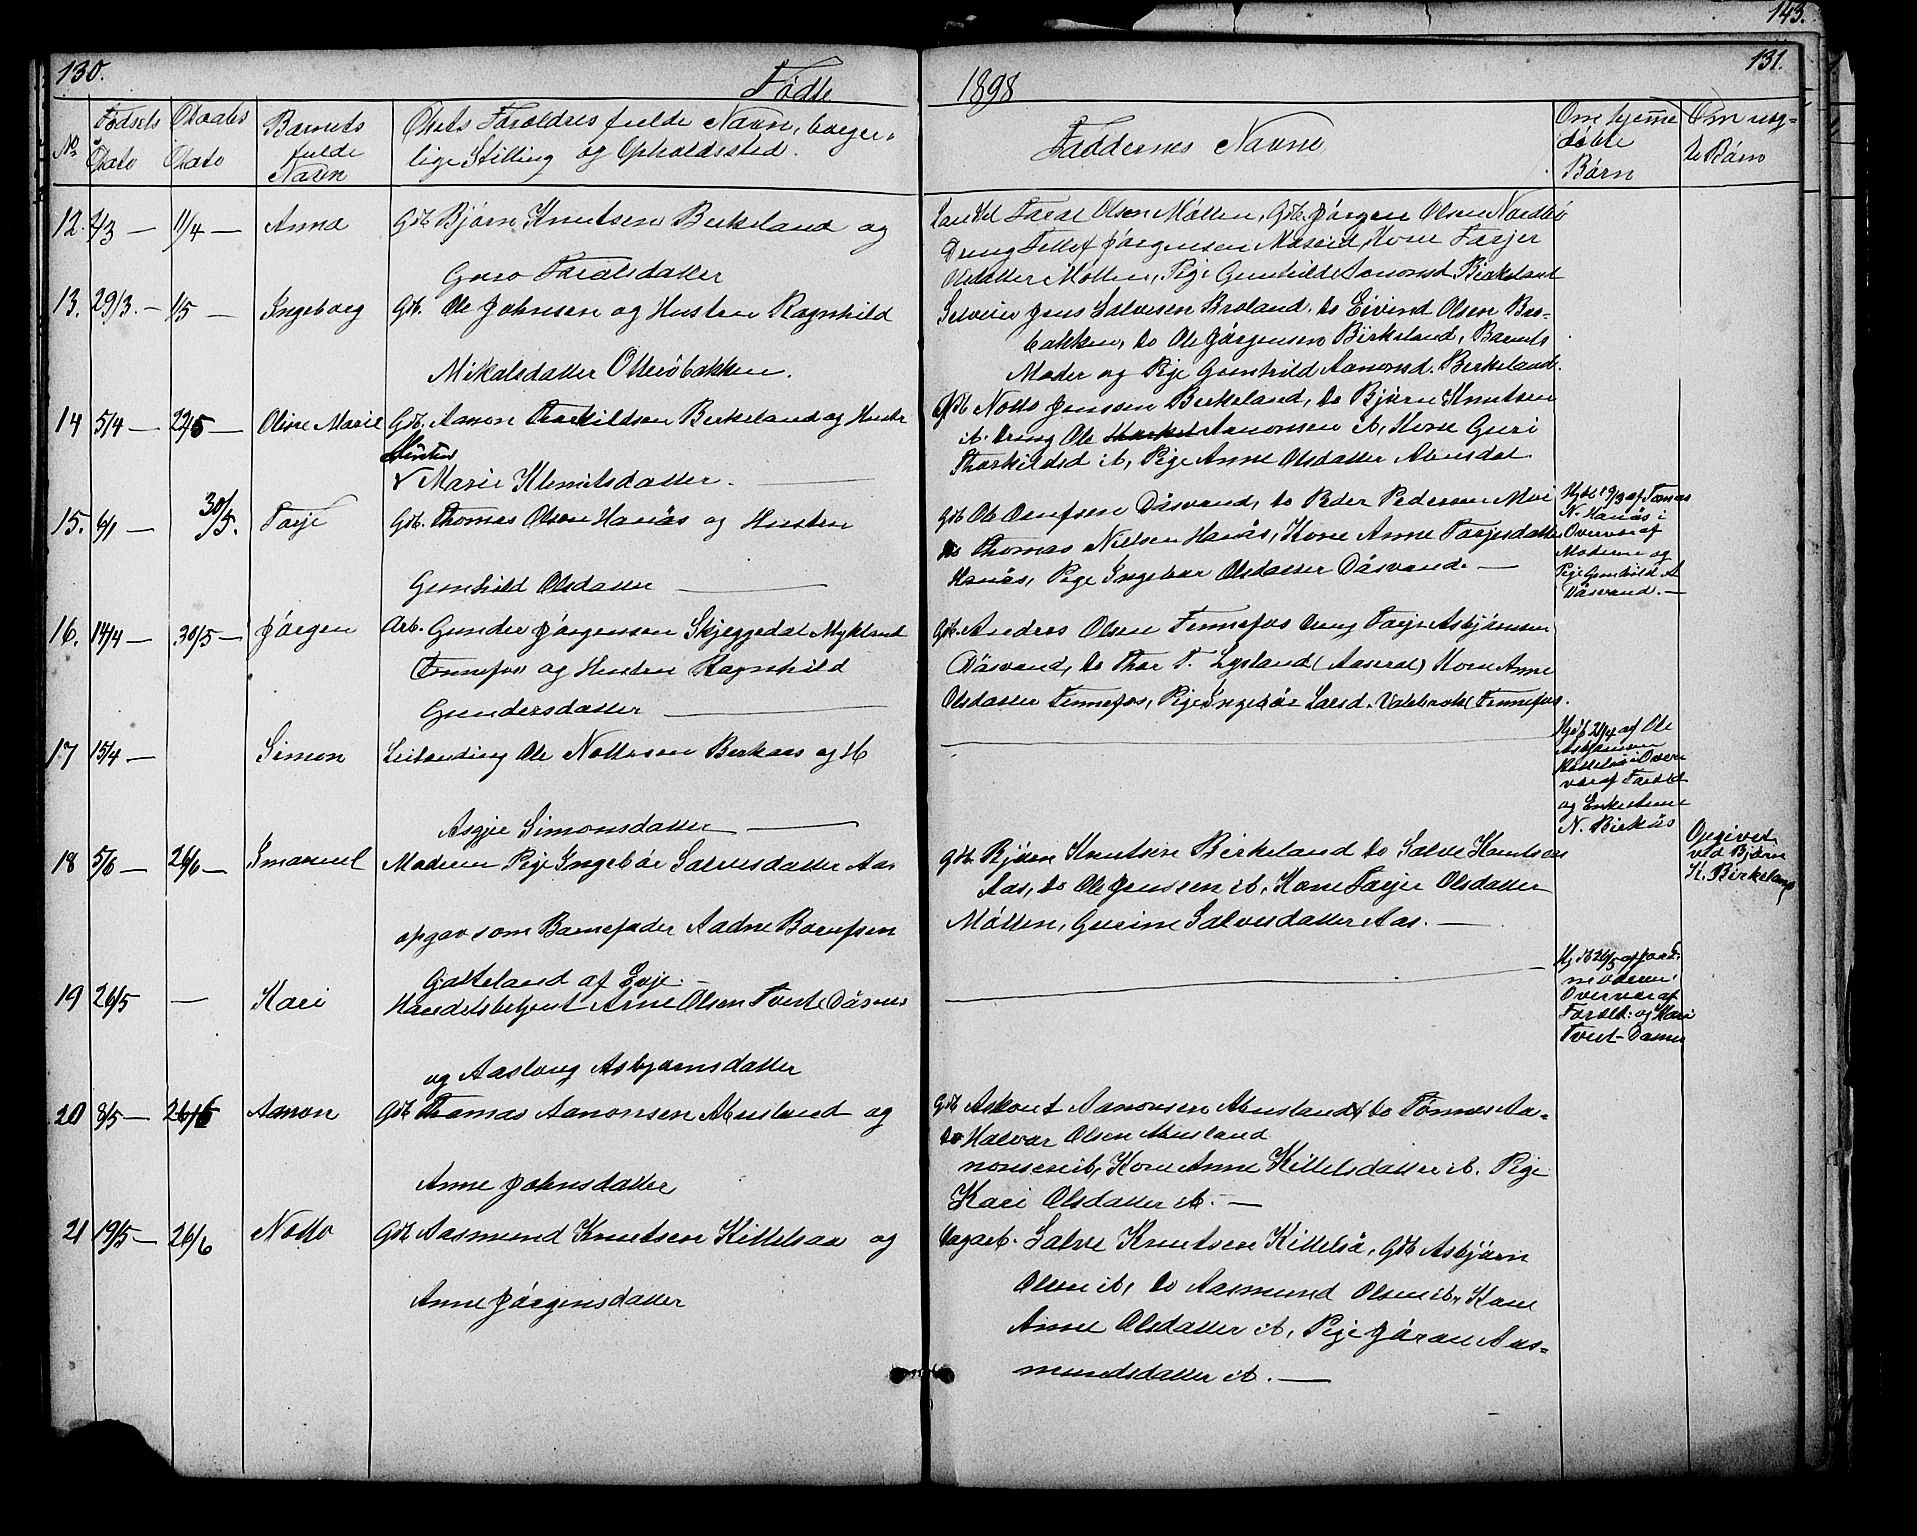 130.
Fødte
1898
131.
143.
No
Fødsels Dato
Daabs Dato
Barnets fulde Navn
Dets Forældres fulde Navn, borger-
lige Stilling og Opholdssted.
Faddernes Navne
Om hjemme døbte Børn
Om uæg-
te Børn
12. 2/3 — 11/4 — Anna
Gdb. Bjørn Knutsen Birkeland og
Guro Taralsdatter
Taral Olsen Møllen, Gdb. Jørgen Olsen
Dreng Tellef Jørgensen Kone Tarjer
Olsdatter Møllen, Pige Gunhild Aanonsd. Birkeland
13. 29/3. — 1/5 — Ingeborg
Gdb. Ole Johnsen og Hustru Ragnhild
Mikalsdatter
Selveier Jens Salvesen Broland, do Eivind Olsen
bakken, do Ole Jørgensen Birkeland, Barnets
Moder og Pige Gunhild Aanonsd. Birkeland.
14 5/4 — 22/5 — Oline Marie
Gdb. Aanon Thorkildsen Birkeland og Hustr
Hustru
Marie Klemetsdatter. —
Gdb Notto Jenssen Birkeland, do Bjørn Knutsen
ib. dreng Ole Aanonsen ib, Kone Guri
Thorkildsd ib, Pige Anne Olsdatter
15. 6/1 — 30/5. Tarje
Gdb. Thomas Olsen Hanås og Hustru
Gunhild Olsdatter —
Gdb Ole Dåsvand, do Peder Pedersen Moi
do Thomas Nielsen Hanås, Kone Anne Tarjesdatter
Hanås, Pige Ingebor Olsdatter Dåsvand. —
Hjdb 19/3 af Tomas
N. Hanås i
Overvær af
Moderen og
Pige Gunhild A
Dåsvand. —
16. 14/4 — 30/5 — Jørgen
Arb. Gunder Jørgensen Skjeggedal Mykland
Fennefos og Hustru Ragnhild
Gundersdatter —
Gdb. Anders Olsen Fennefos Dreng Tarje Asbjørnsen
Dåsvand, do Thor T. Lysland (Aaseral) Kone Anne
Olsdatter Fennefos, Pige Ingebør Larsd. Fennefos.
17 15/4 — Simon
Leilending Ole Nottosen Berkaas og H
Asgjer Simonsdatter —
Hjdb 21/4 af Ole
Asbjørnsen
i Over
vær af Faders
og Enke Anne
N. Birkås
18 5/6 — 26/6 — Imanuel
Moderen Pige Ingebør Salvesdatter Aas
opgav som Barnefader Aadne
Galteland af Evje. —
Gdb. Bjørn Knutsen Birkeland do Salve Knutsen
Aas, do Ole Jenssen ib, Kone Tarjer Olsdatter
Møllen, Gurine Salvesdatter Aas. —
Opgivet
ved Bjørn
K. Birkeland
19 26/5 — Kari
Handelsbetjent Arne Olsen Tveit Dåsnes
og Aaslaug Asbjørnsdatter
Hjdb 26/5 af Jord-
moderen i
Overvær af
Foræld. og Kari
Tveit-Dåsnes
20 8/5 — 26/6 Aanon
Gdb Thomas Aanonsen Abusland og
Anne Johnsdatter
Gdb Askout Aanonsen Abusland do Tønnes Aa-
do Halvor Olsen Abusland
nonsen ib, Kone Anne Kittelsdatter ib. Pige
Kari Olsdatter ib. —
21 19/5 — 26/6 Notto
Gdb Aasmund Knutsen Kittelsaa og
Anne Jørgensdatter
Salve Knutsen Kittelså, Gdb Asbjørn
Olsen ib, do Aasmund Olsen ib, Kone
Anne Olsdatter ib, Pige Jøran Aas-
mundsdatter ib. —